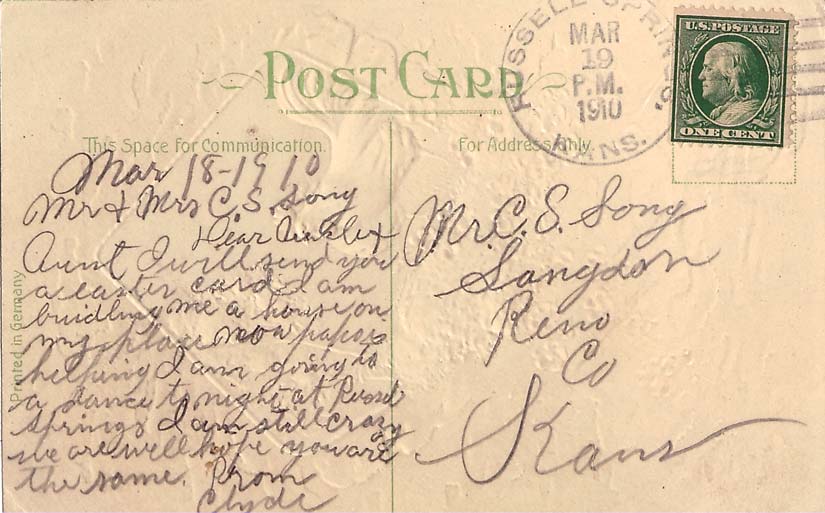 POST CARD
This Space for Communication.
For Address Only.
RUSSELL SPRINGS,
MAR
19
P.M.
1910
KANS.
U.S. POSTAGE
ONE CENT
Printed in Germany
Mar 18-1910
Mr + Mrs C. S. Long
Dear Uncle +
Aunt I will send you
a easter card I am
buidling me a house on
my place now papa is
helping I am going to
a dance to night at Russel
Springs I am still crazy
we are well hope you are
the same. From
Clyde
Mr. C. S. Long
Langdon
Reno
Co
Kans